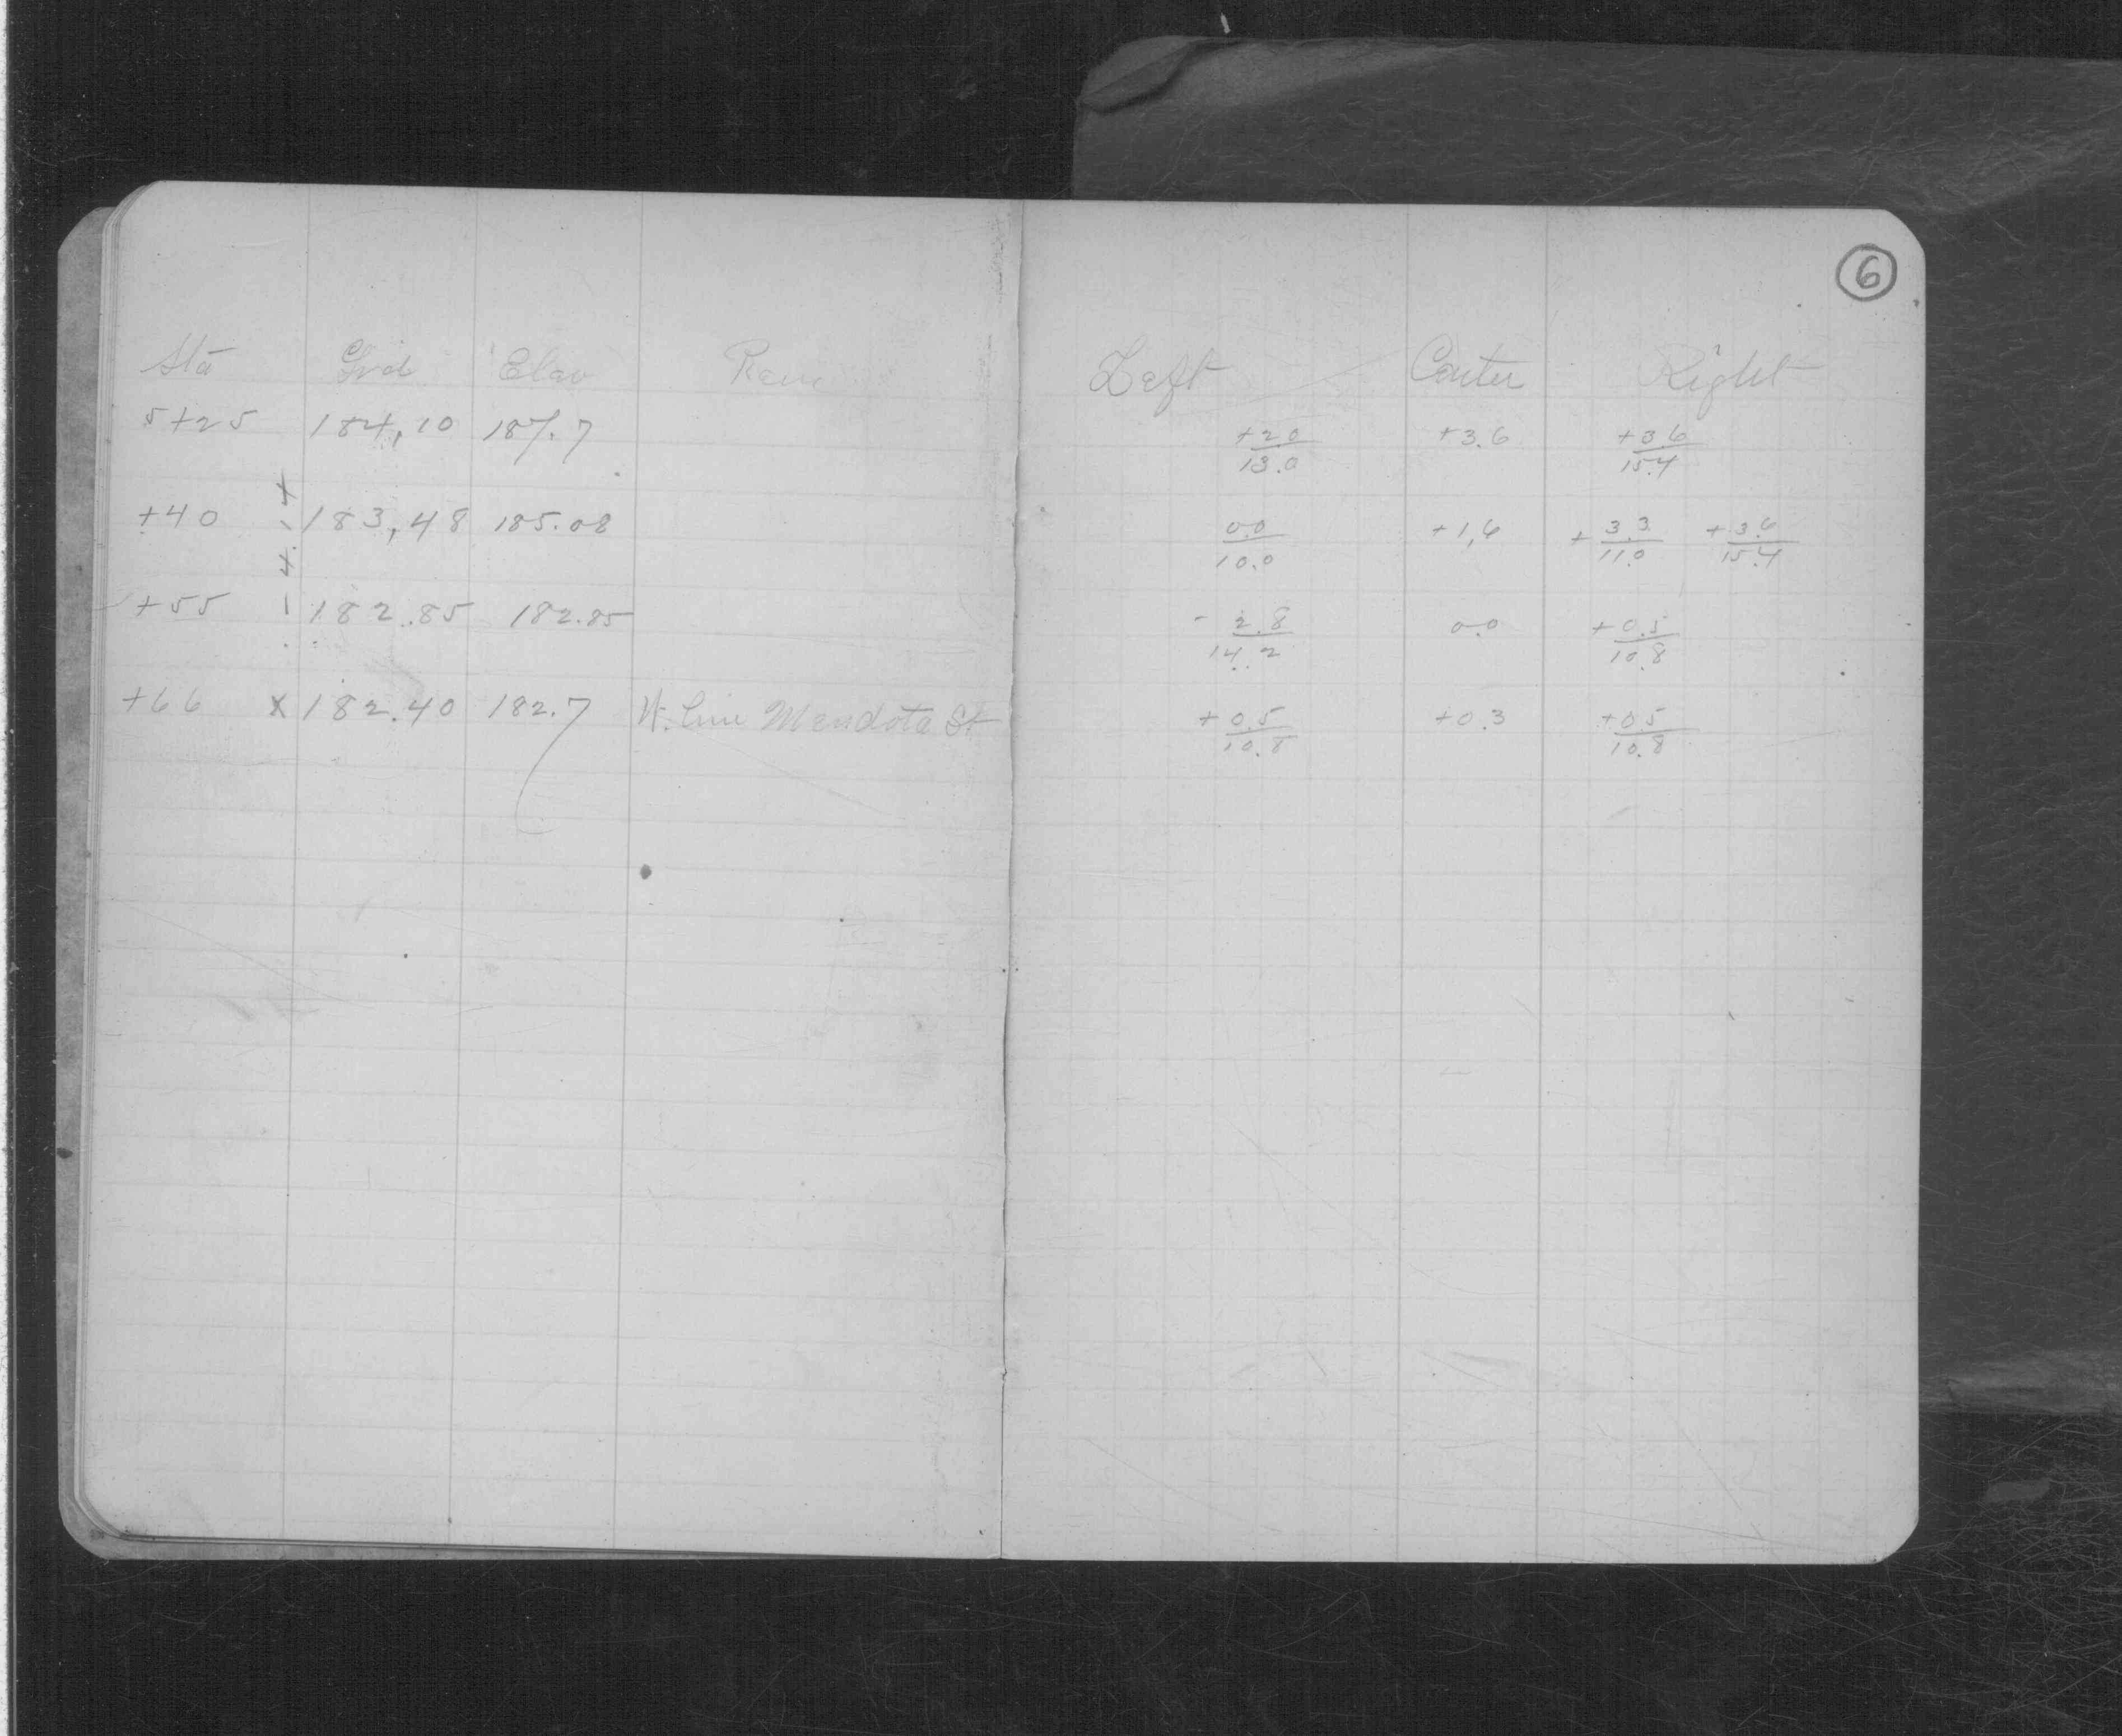 6
Sta Grd Elev Rem Left Center Right
5+25 184.10 187.7 +2.0/13.0 +3.6 +3.6/15.4
+40 183.48 185.08 0.0/10.0 +1.6 +3.3/11.0 +3.6/15.4
+55 182.85 182.85 -2.8/14.2 0.0 +0.5/10.8
+66 x 182.40 182.7 W. line Mendota St +0.5/10.8 +0.3 +0.5/10.8